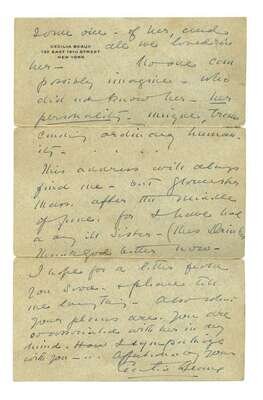 Some one - of her kind
CECILIA BEAUX
132 EAST 19TH STREET
NEW YORK
all we loved in
her - no one can
possibly imagine - who
did not know her - her
personality - unique, trans
cending ordinary human
ity - . . . . .
This address will always
find me - but Gloucester
Mass. after the middle
of June. for I have had
a very ill sister - (Mrs Drinker
Thank god better now -
I hope for a letter from
you soon - & please tell
me everything - also what
your plans are. you are
so associated with her in my
mind. How I sympathize
with you - - affectionately yours
Cecilia Beaux